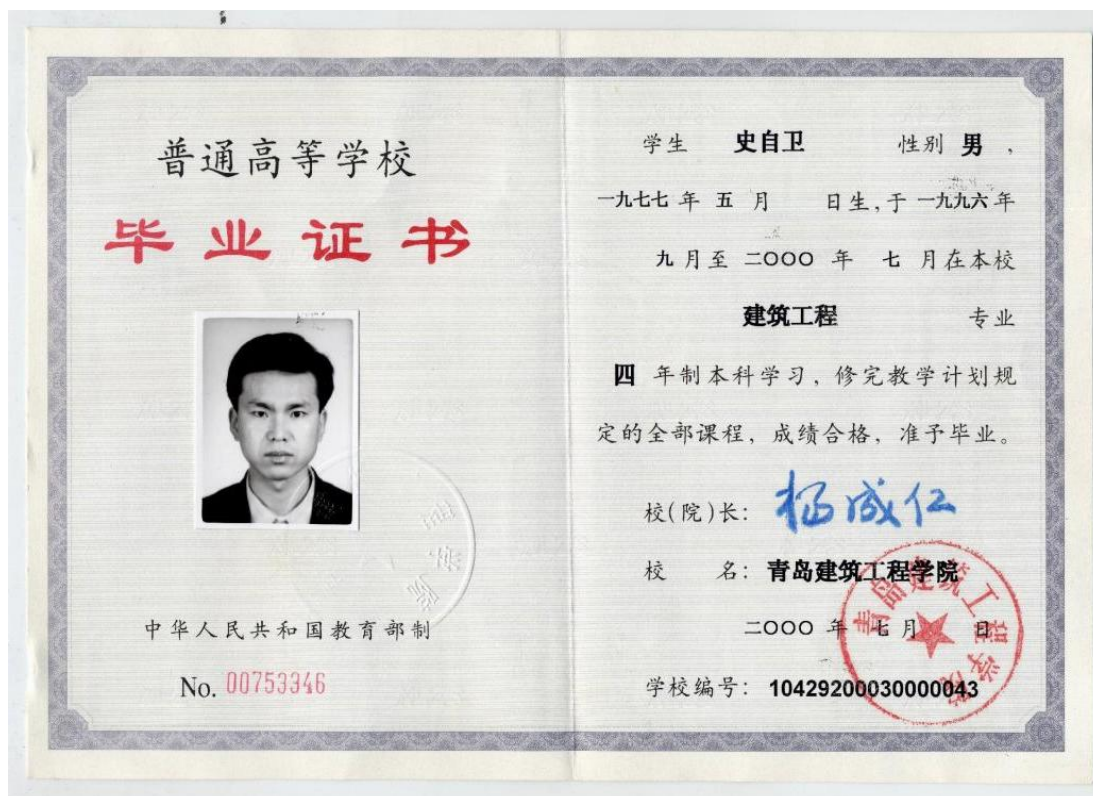 普通高等学校
毕业证书
中华人民共和国教育部制
No. 00753346
学生 史自卫 性别 男，
一九七七 年 五 月 日生，于 一九九六 年
九 月至 二〇〇〇 年 七 月在本校
建筑工程 专业
四 年制本科学习，修完教学计划规
定的全部课程，成绩合格，准予毕业。
校(院)长：杨成仁
校 名：青岛建筑工程学院
二〇〇〇 年 七 月 日
学校编号：10429200030000043
青岛建筑工程学院